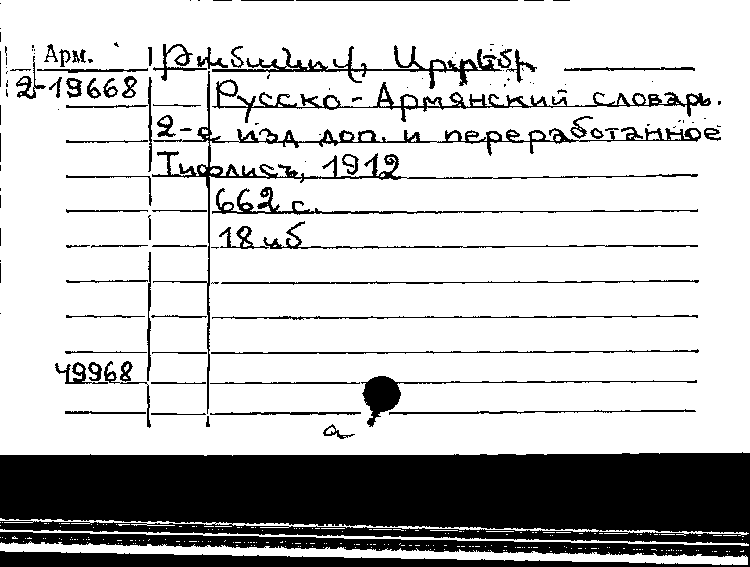 Арм.
2-19668
Русско-Армянский словарь.
2-е изд доп. и переработанное
Тифлисъ, 1912
662 с.
18иб
49968
а